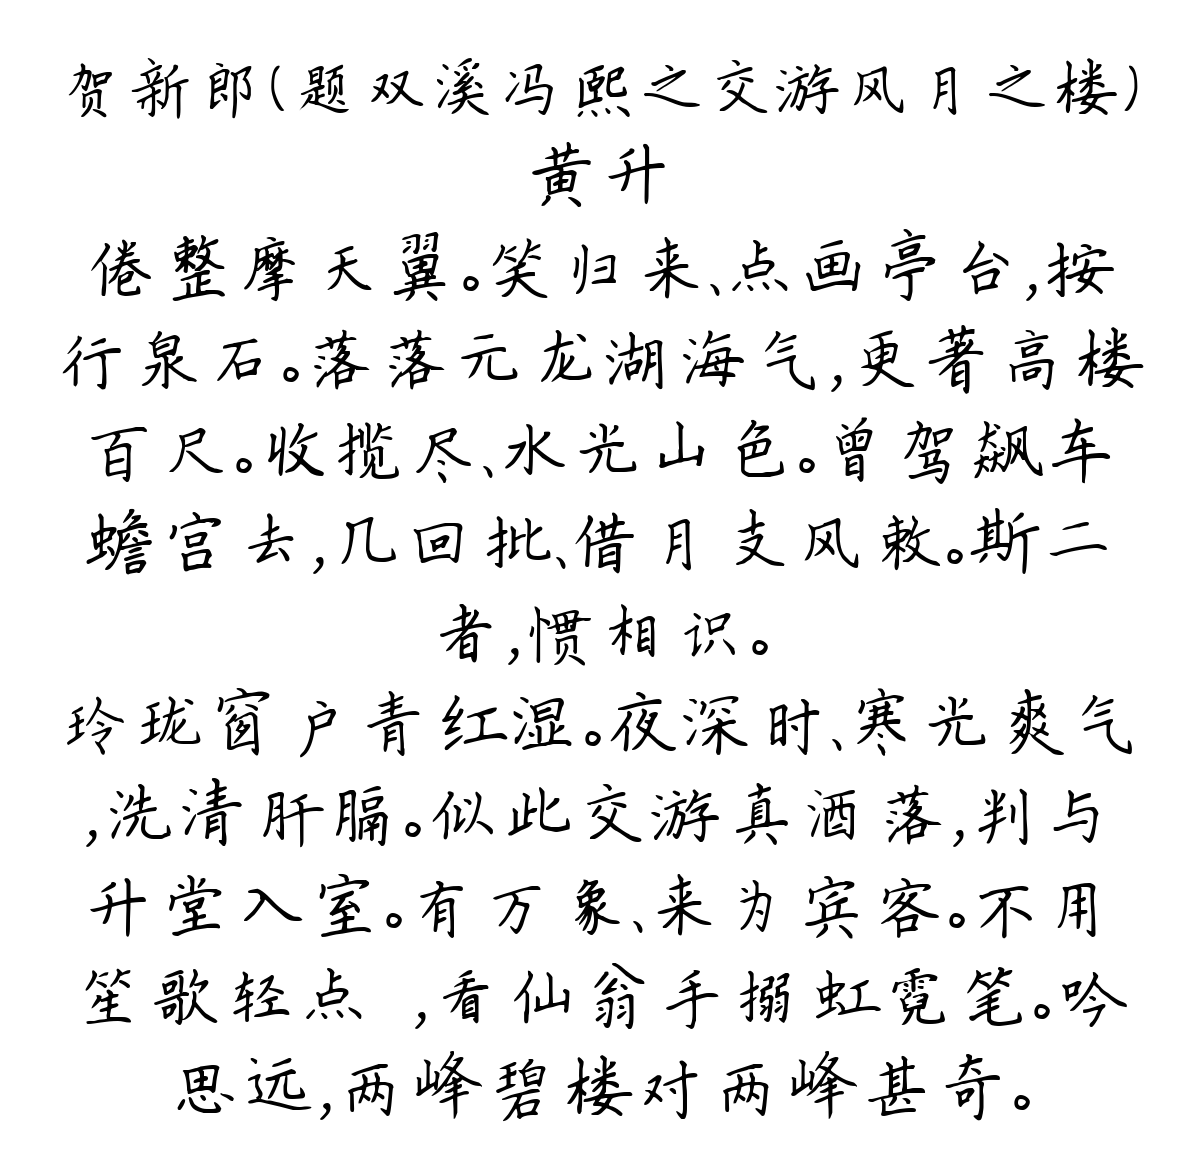 贺新郎(题双溪冯熙之交游风月之楼)
黄升
倦整摩天翼。笑归来、点画亭台,按
行泉石。落落元龙湖海气,更著高楼
百尺。收揽尽、水光山色。曾驾飙车
蟾宫去,几回批、借月支风敕。斯二
者,惯相识。
玲珑窗户青红湿。夜深时、寒光爽气
,洗清肝膈。似此交游真洒落,判与
升堂入室。有万象、来为宾客。不用
笙歌轻点 ,看仙翁手搦虹霓笔。吟
思远,两峰碧楼对两峰甚奇。